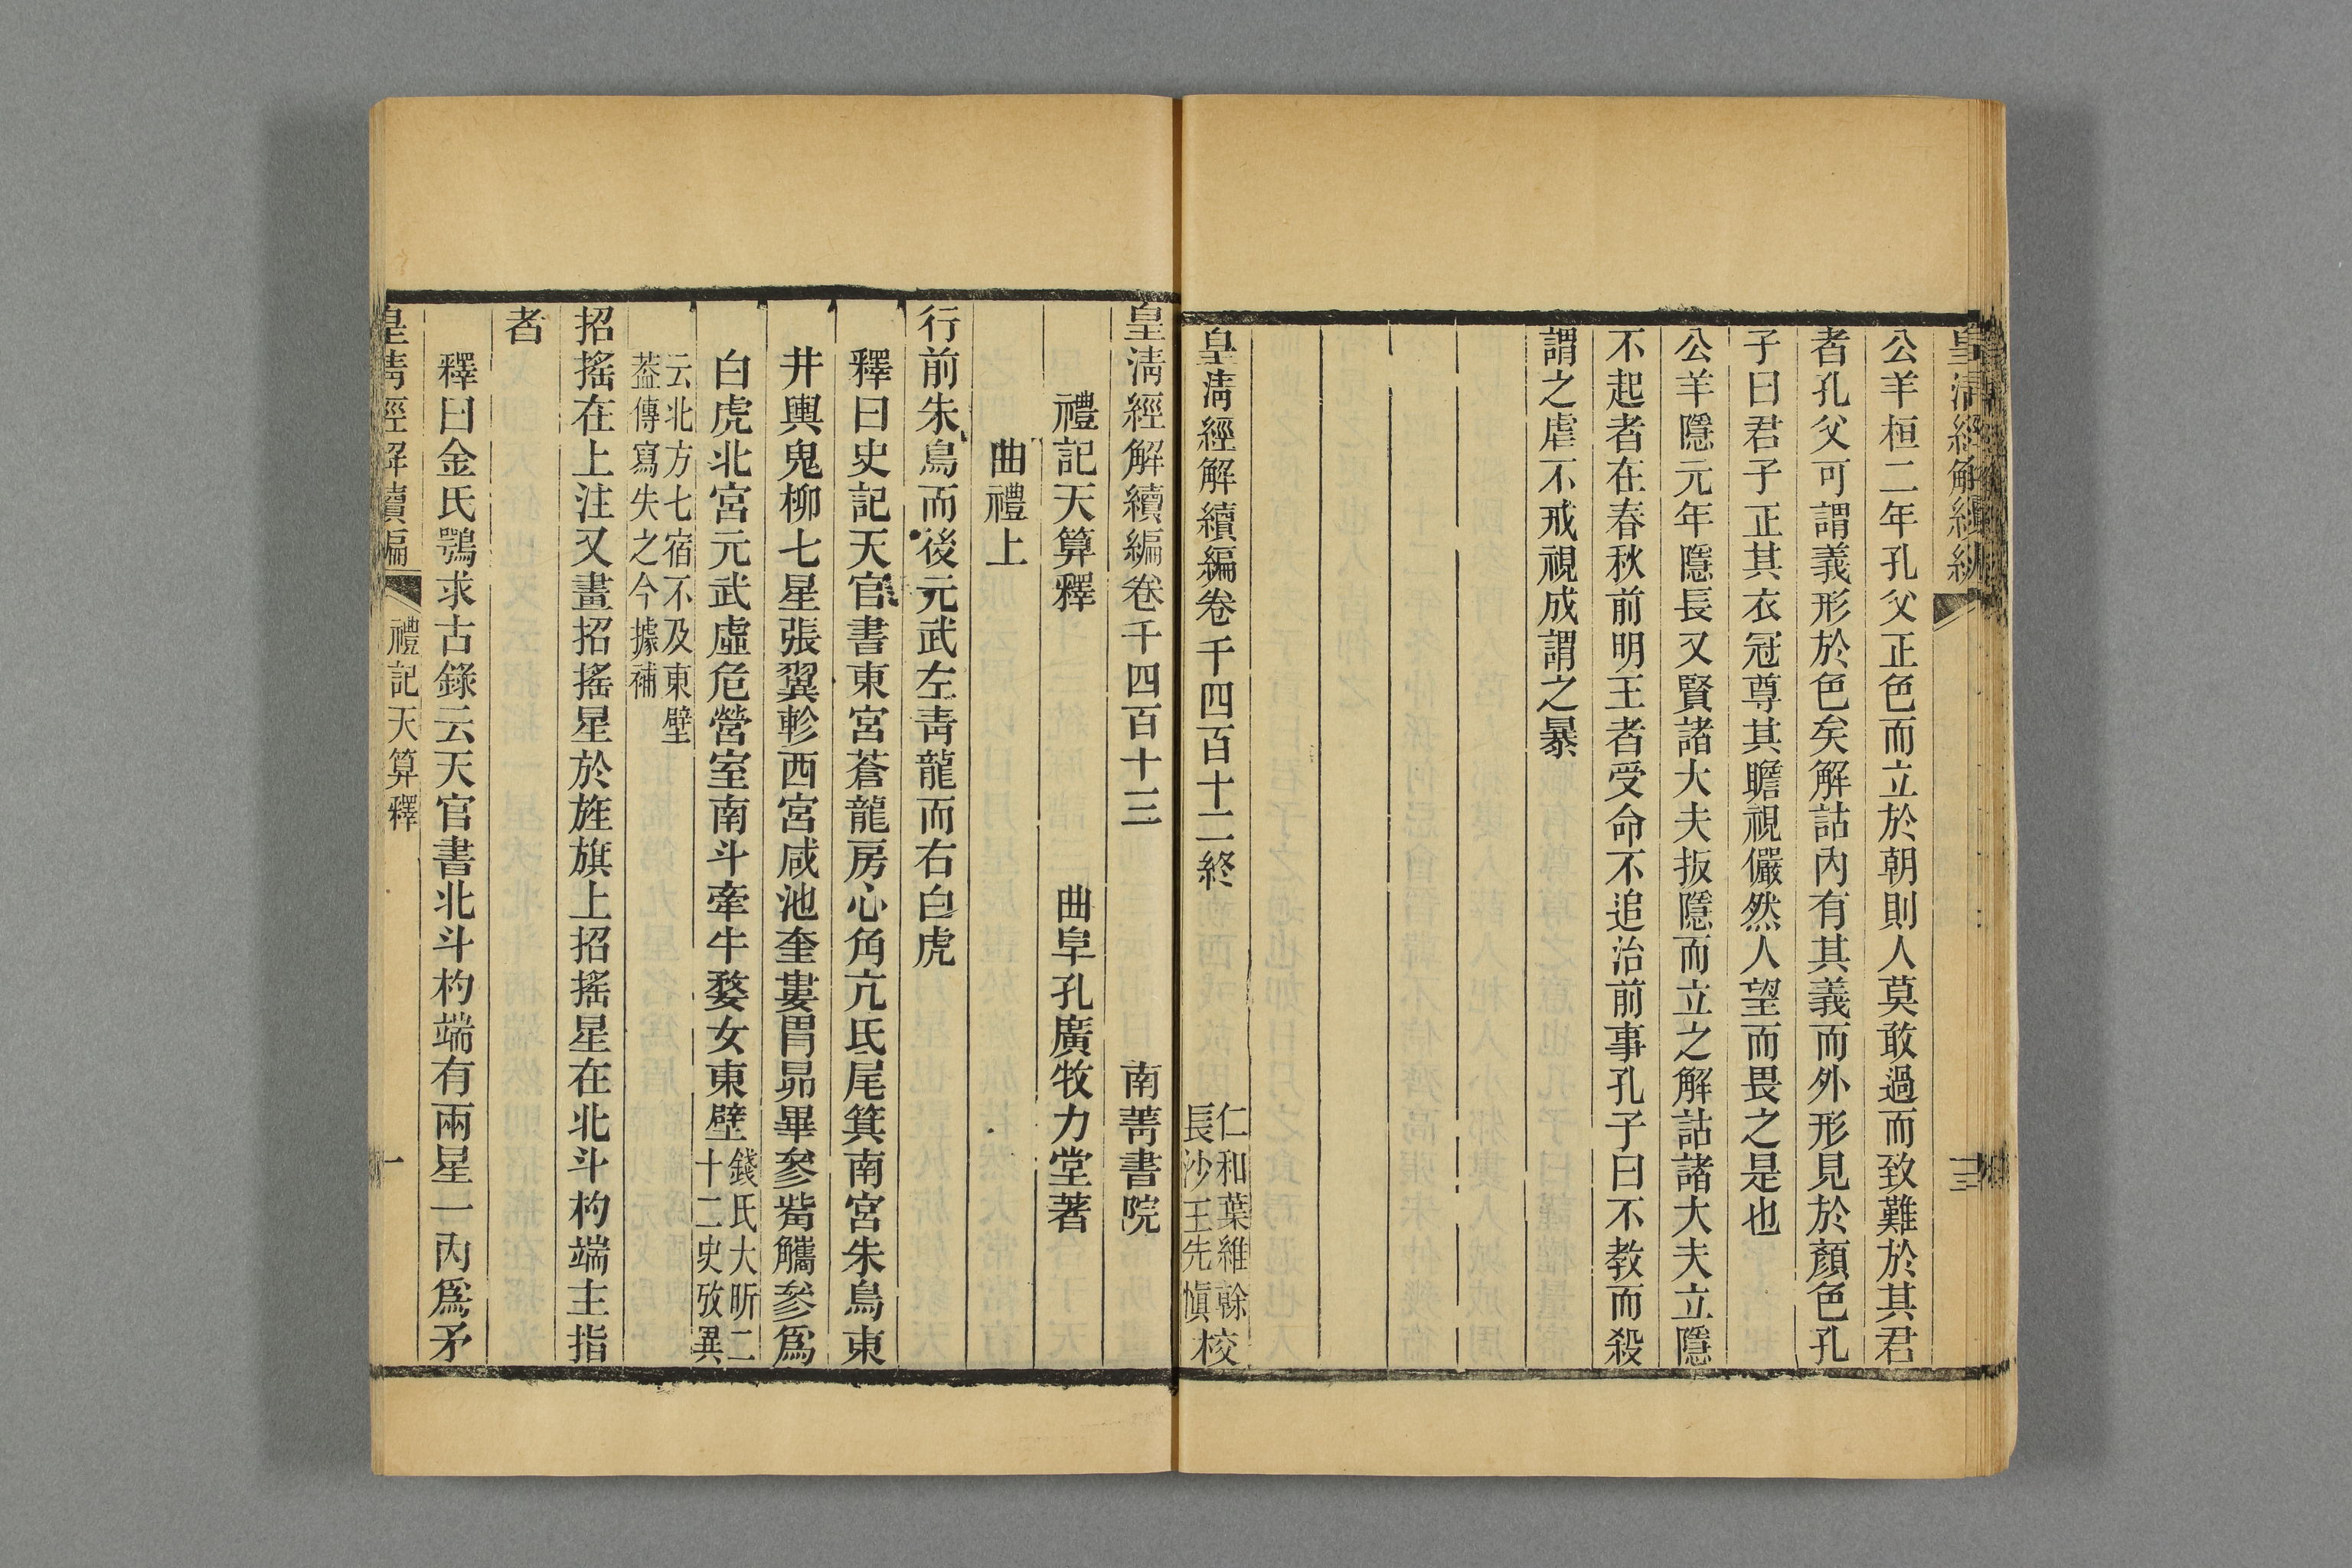 皇淸經解續編
三
公羊桓二年孔父正色而立於朝則人莫敢過而致難於其君
者孔父可謂義形於色矣解詁內有其義而外形見於顏色孔
子曰君子正其衣冠尊其瞻視儼然人望而畏之是也
公羊隱元年隱長又賢諸大夫扳隱而立之解詁諸大夫立隱
不起者在春秋前明王者受命不追治前事孔子曰不教而殺
謂之虐不戒視成謂之暴
皇淸經解續編卷千四百十二終
仁和葉維榦
長沙王先愼
校
皇淸經解續編卷千四百十三
南菁書院
禮記天算釋
曲阜孔廣牧力堂著
曲禮上
行前朱鳥而後元武左靑龍而右白虎
釋曰史記天官書東宮蒼龍房心角亢氐尾箕南宮朱鳥東
井輿鬼柳七星張翼軫西宮咸池奎婁胃昴畢參觜觿參爲
白虎北宮元武虛危營室南斗牽牛婺女東壁
錢氏大昕二
十二史攷異
云北方七宿不及東壁
葢傳寫失之今據補
招搖在上注又畫招搖星於旌旗上招搖星在北斗杓端主指
者
釋曰金氏鶚求古錄云天官書北斗杓端有兩星一內爲矛
皇淸經解續編
禮記天算釋
一